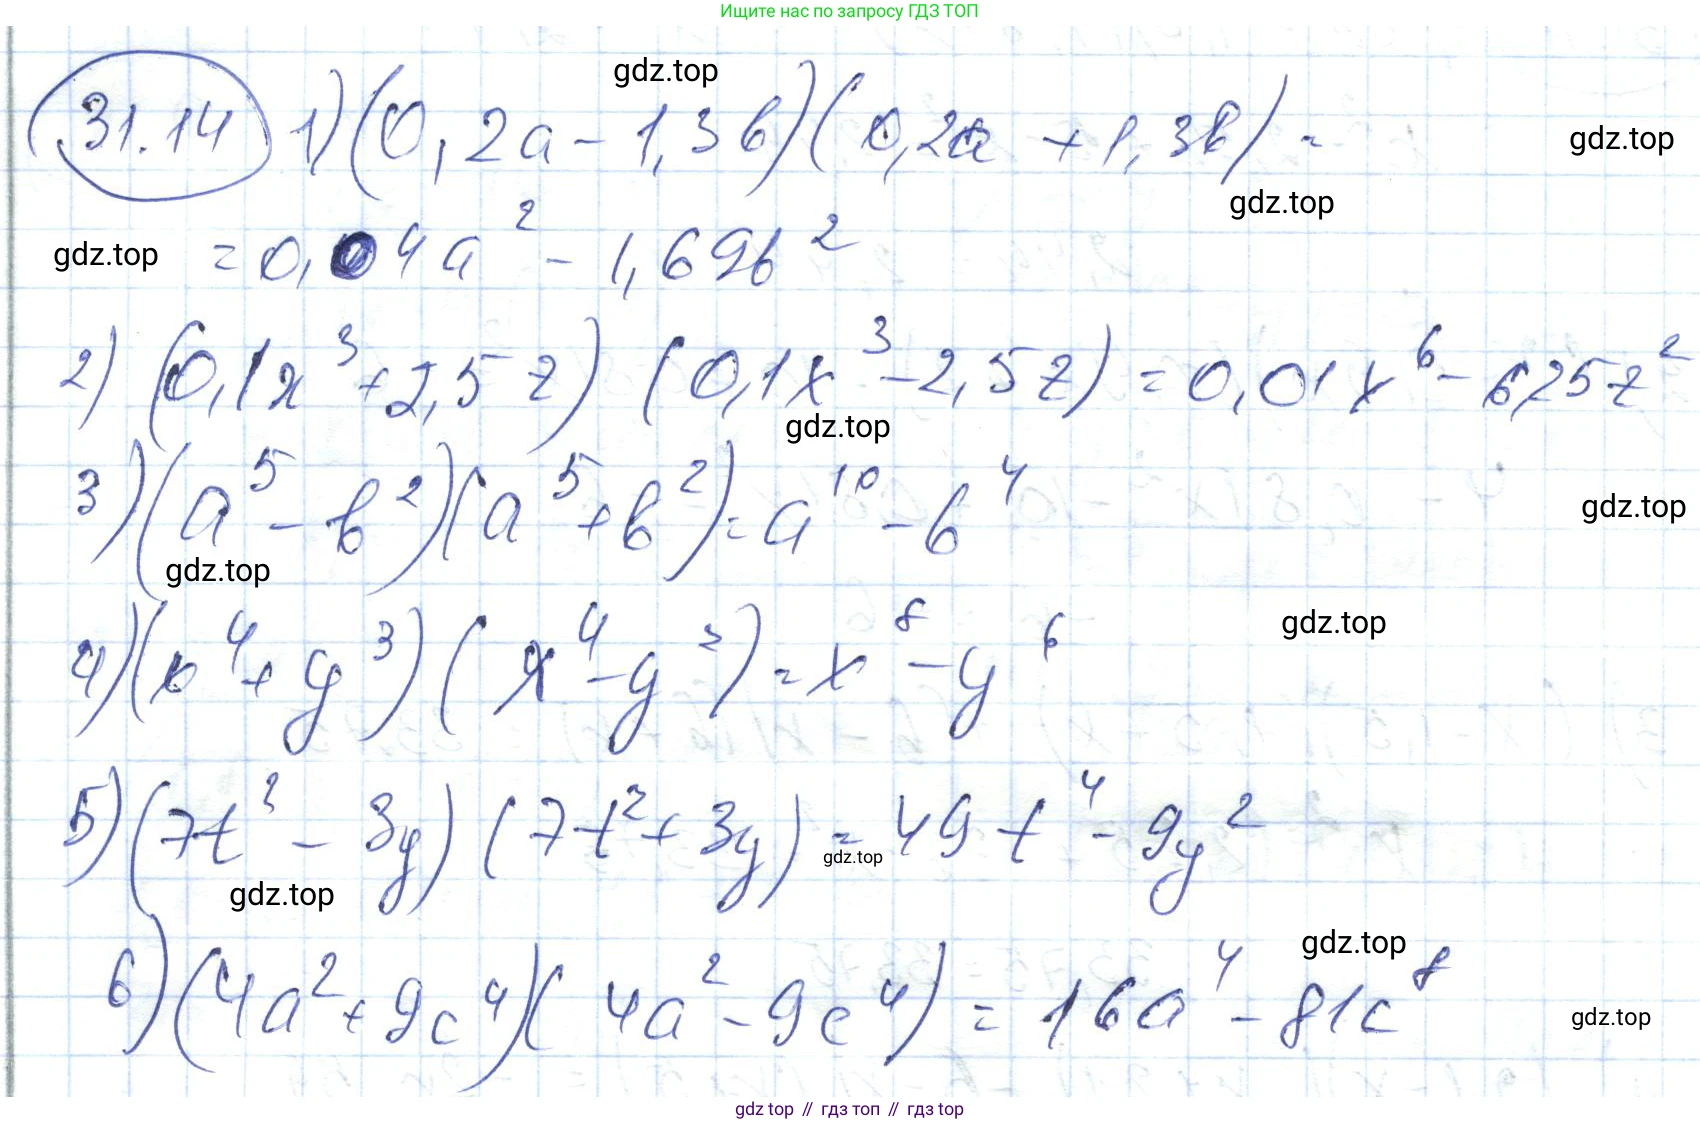 Ищите нас по запросу ГДЗ ТОП
gdz.top
31.14 1) (0,2a - 1,3b) (0,2a + 1,3b) =
gdz.top
gdz.top
= 0,04a² - 1,69b²
gdz.top
2) (0,1x³ + 2,5z) (0,1x³ - 2,5z) = 0,01x⁶ - 6,25z²
gdz.top
3) (a⁵ - b²)(a⁵ + b²) = a¹⁰ - b⁴
gdz.top
gdz.top
gdz.top
4) (x⁴ + y³) (x⁴ - y³) = x⁸ - y⁶
5) (7t² - 3y) (7t² + 3y) = 49t⁴ - 9y²
gdz.top
gdz.top
gdz.top
6) (4a² + 9c⁴)(4a² - 9c⁴) = 16a⁴ - 81c⁸
gdz.top
gdz top // гдз топ // гдз top